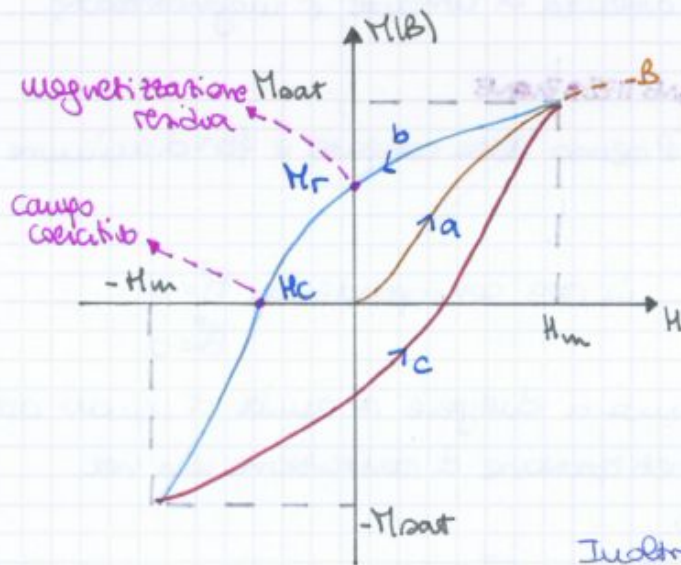 M(B)
magnetizzazione
residua
Msat
-B
b
Mr
a
campo
coercitivo
-Hm
Hc
Hm
H
c
-Msat
Inoltr